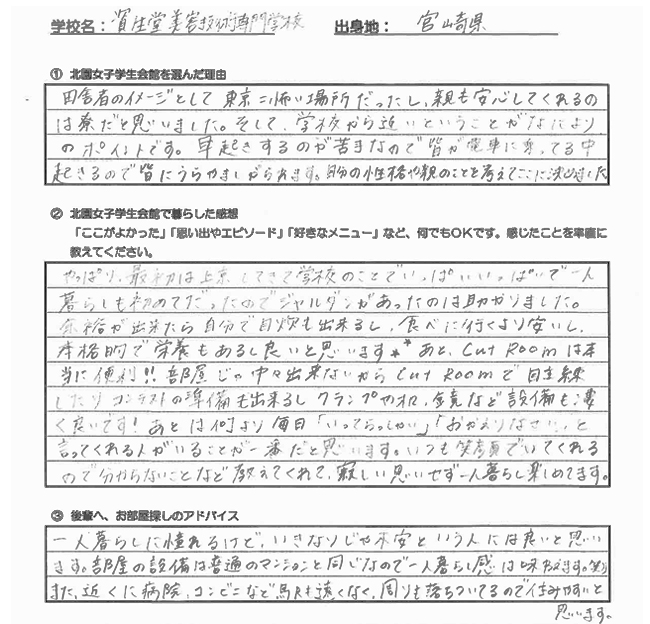 学校名：資生堂美容技術専門学校 出身地：宮崎県
① 北園女子学生会館を選んだ理由
田舎者のイメージとして東京＝怖い場所だったし、親も安心してくれるの
は寮だと思いました。そして、学校から近いということがなにより
のポイントです。早起きするのが苦手なので皆が電車に乗ってる中
起きるので皆にうらやましがられます。自分の性格や親のことを考えてここに決めました
② 北園女子学生会館で暮らした感想
「ここがよかった」「思い出やエピソード」「好きなメニュー」など、何でもOKです。感じたことを率直に
教えてください。
やっぱり、最初は上京してきて学校のことでいっぱいいっぱいで一人
暮らしも初めてだったのでジャルダンがあったのは助かりました。
余裕が出来たら自分で自炊も出来るし、食べに行くより安いし、
本格的で栄養もあるし良いと思います** あと、Cut Roomは本
当に便利!! 部屋じゃ中々出来ないからCut Roomで自主練
したりコンテストの準備も出来るしクランプや机、鏡など設備も凄
く良いです！あとは何より毎日「いってらっしゃい」「おかえりなさい」と
言ってくれる人がいることが一番だと思います。いつも笑顔でいてくれる
ので分からないことなど教えてくれて、寂しい思いせず一人暮らし楽しめてます。
③ 後輩へ、お部屋探しのアドバイス
一人暮らしに憧れるけど、いきなりじゃ不安という人には良いと思い
ます。部屋の設備は普通のマンションと同じなので一人暮らし感は味わえます。(笑)
また、近くに病院、コンビニなど駅も遠くなく、周りも落ちついてるので住みやすいと
思います。